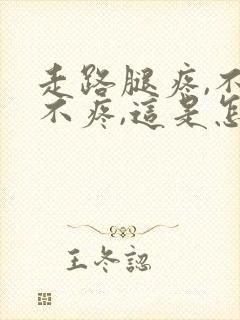 走路腿疼,不
不疼,這是怎
王冬認